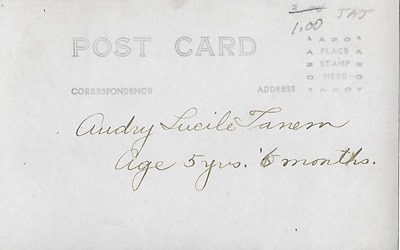 1.00 JAJ
POST CARD
AZO
PLACE
STAMP
HERE
AZO
CORRESPONDENCE
ADDRESS
Audry Lucile Tanem
Age 5 yrs. 6 months.